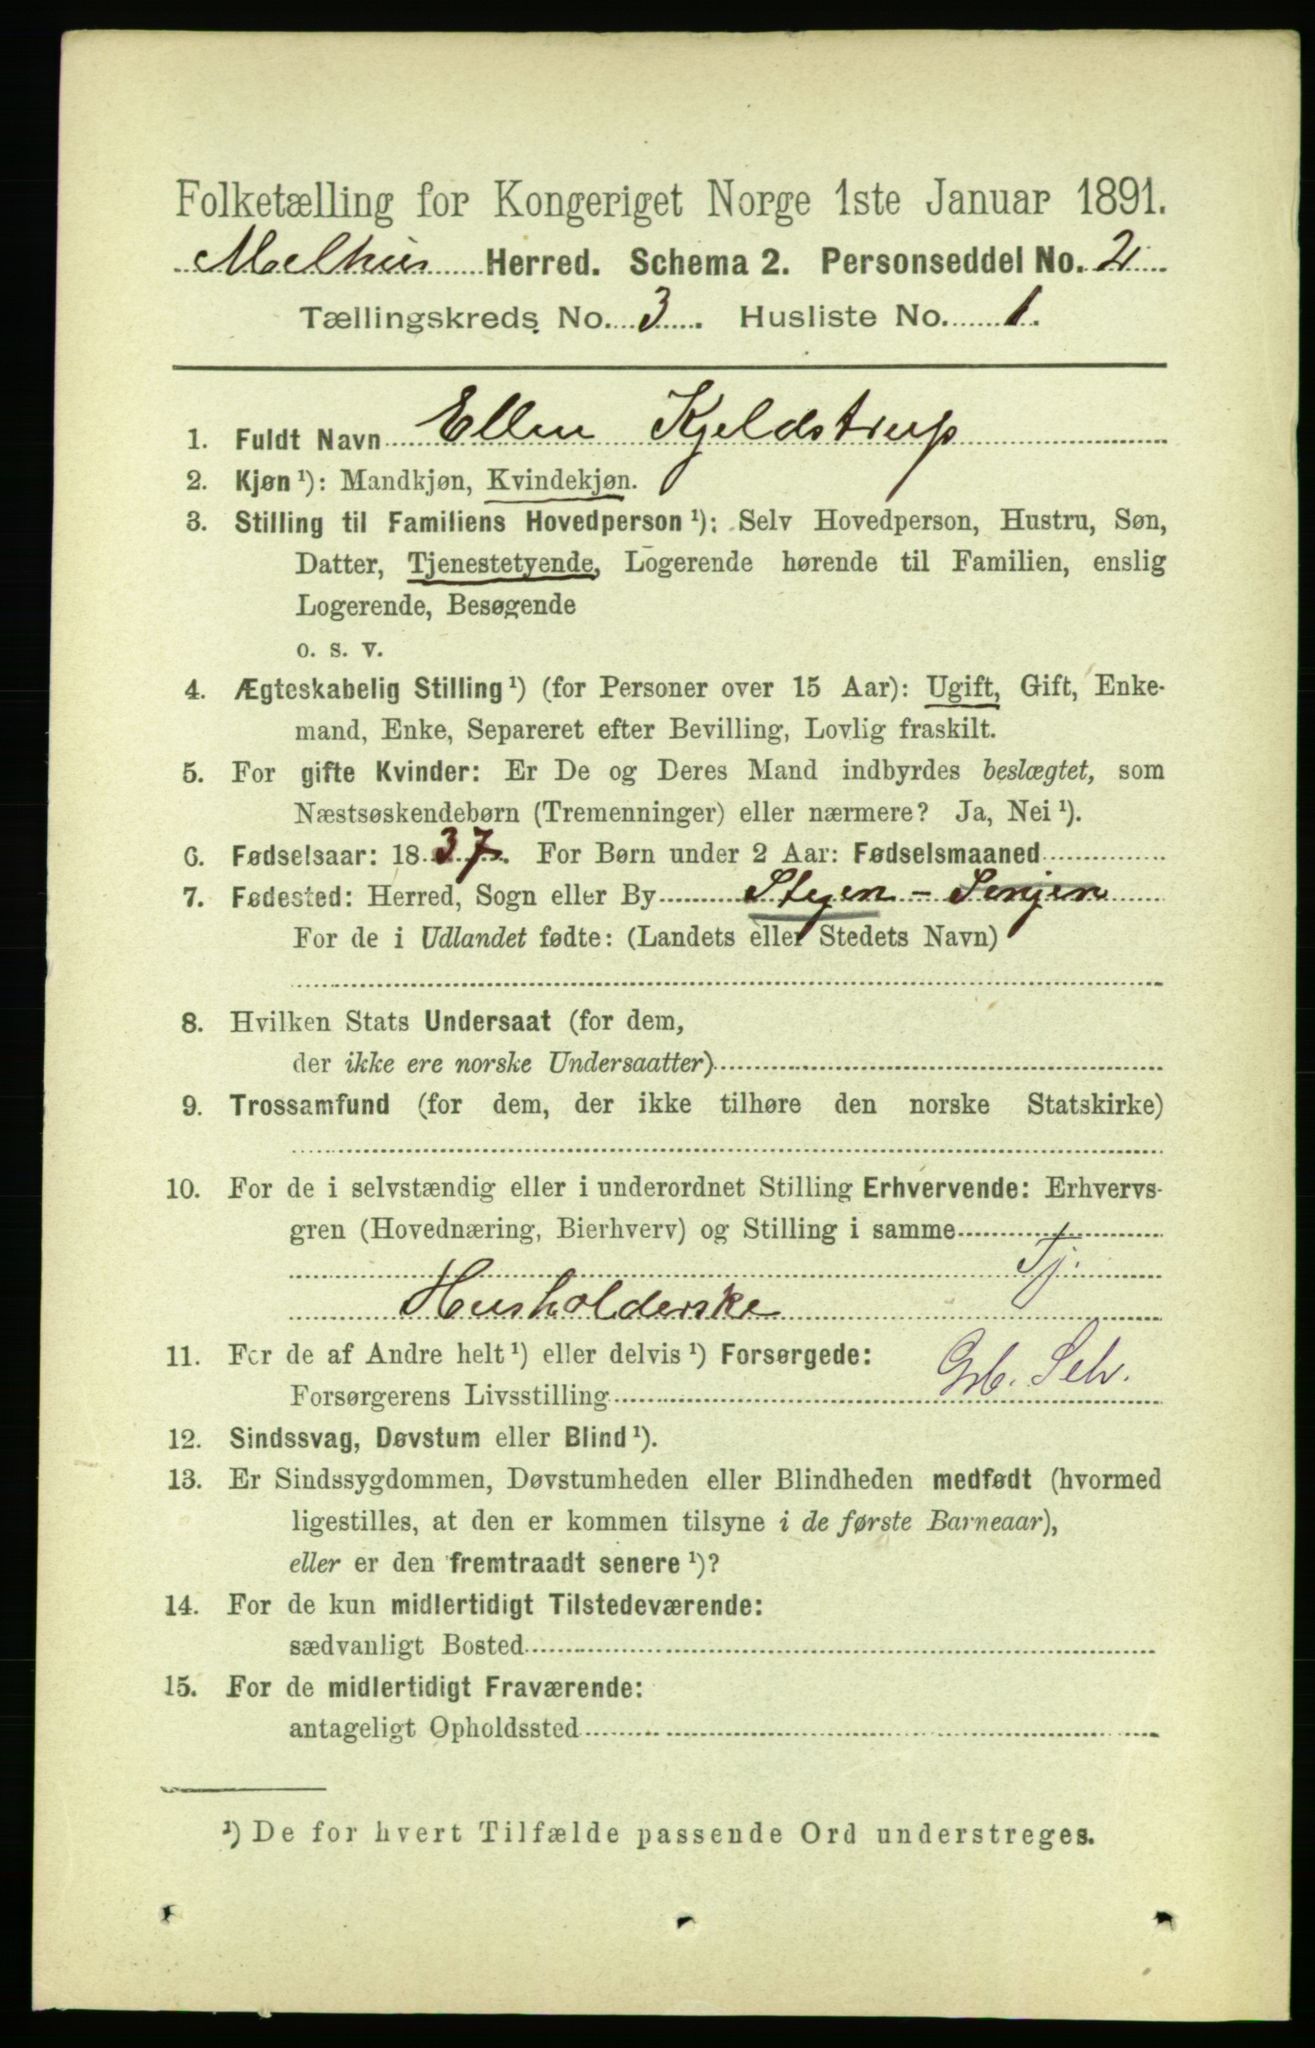 Folketælling for Kongeriget Norge 1ste Januar 1891.
Melhus Herred. Schema 2. Personseddel No. 2
Tællingskreds No. 3. Husliste No. 1.
1. Fuldt Navn Ellen Kjeldstrup
2. Kjøn ¹): Mandkjøn, Kvindekjøn.
3. Stilling til Familiens Hovedperson ¹): Selv Hovedperson, Hustru, Søn,
Datter, Tjenestetyende, Logerende hørende til Familien, enslig
Logerende, Besøgende
o. s. v.
4. Ægteskabelig Stilling ¹) (for Personer over 15 Aar): Ugift, Gift, Enke-
mand, Enke, Separeret efter Bevilling, Lovlig fraskilt.
5. For gifte Kvinder: Er De og Deres Mand indbyrdes beslægtet, som
Næstsøskendebørn (Tremenninger) eller nærmere? Ja, Nei ¹).
6. Fødselsaar: 1837. For Børn under 2 Aar: Fødselsmaaned
7. Fødested: Herred, Sogn eller By Stegen - Senjen
For de i Udlandet fødte: (Landets eller Stedets Navn)
8. Hvilken Stats Undersaat (for dem,
der ikke ere norske Undersaatter)
9. Trossamfund (for dem, der ikke tilhøre den norske Statskirke)
10. For de i selvstændig eller i underordnet Stilling Erhvervende: Erhvervs-
gren (Hovednæring, Bierhverv) og Stilling i samme
Tj.
Husholderske
11. For de af Andre helt ¹) eller delvis ¹) Forsørgede:
Forsørgerens Livsstilling Grb. Selv.
12. Sindssvag, Døvstum eller Blind ¹).
13. Er Sindssygdommen, Døvstumheden eller Blindheden medfødt (hvormed
ligestilles, at den er kommen tilsyne i de første Barneaar),
eller er den fremtraadt senere ¹)?
14. For de kun midlertidigt Tilstedeværende:
sædvanligt Bosted
15. For de midlertidigt Fraværende:
antageligt Opholdssted
¹) De for hvert Tilfælde passende Ord understreges.